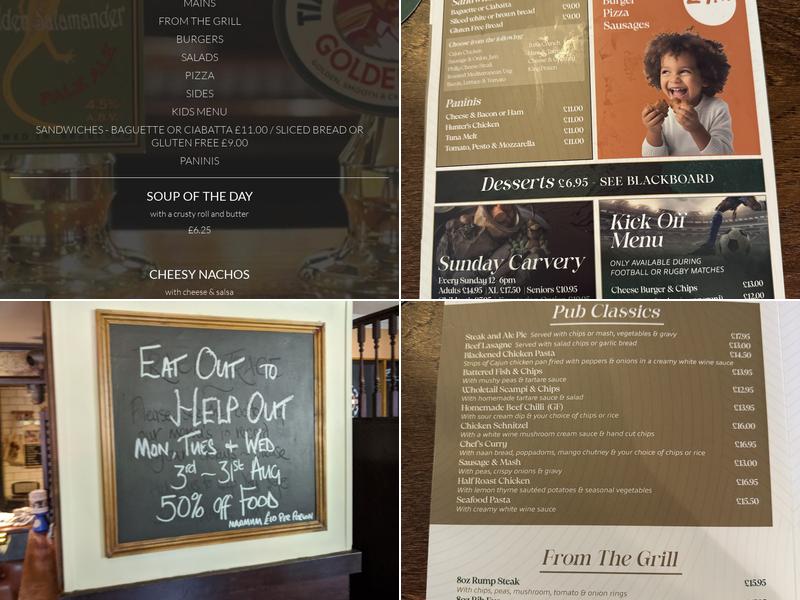 Golden Salamander
PALE ALE
4.5%
A.B.V
GOLDE
GOLDEN, SMOOTH &
MAINS
FROM THE GRILL
BURGERS
SALADS
PIZZA
SIDES
KIDS MENU
SANDWICHES - BAGUETTE OR CIABATTA £11.00 / SLICED BREAD OR
GLUTEN FREE £9.00
PANINIS
SOUP OF THE DAY
with a crusty roll and butter
£6.25
CHEESY NACHOS
with cheese & salsa
Baguette or Ciabatta
Sliced white or brown bread £9.00
Gluten Free Bread £9.00
Choose from the following
Cajun Chicken
Sausage & Onion Jam
Philly Cheese Steak
Roasted Mediterranean Veg
Bacon, Lettuce & Tomato
Tuna Crunch
King Prawn
Paninis
Cheese & Bacon or Ham £11.00
Hunter's Chicken £11.00
Tuna Melt £11.00
Tomato, Pesto & Mozzarella £11.00
Burger
Pizza
Sausages
Desserts £6.95 - SEE BLACKBOARD
Sunday Carvery
Every Sunday 12-6pm
Adults £14.95 | XL £17.50 | Seniors £10.95
Kick Off
Menu
ONLY AVAILABLE DURING
FOOTBALL OR RUGBY MATCHES
Cheese Burger & Chips £13.00
£12.00
EAT OUT TO
HELP OUT
MON, TUES + WED
3rd - 31st AUG
50% off FOOD
MAXIMUM £10 PER PERSON
Pub Classics
Steak and Ale Pie Served with chips or mash, vegetables & gravy £17.95
Beef Lasagne Served with salad chips or garlic bread £13.00
Blackened Chicken Pasta £14.50
Strips of Cajun chicken pan fried with peppers & onions in a creamy white wine sauce
Battered Fish & Chips £13.95
With mushy peas & tartare sauce
Wholetail Scampi & Chips £12.95
With homemade tartare sauce & salad
Homemade Beef Chilli (GF) £13.95
With sour cream dip & your choice of chips or rice
Chicken Schnitzel £16.00
With a white wine mushroom cream sauce & hand cut chips
Chef's Curry £16.95
With naan bread, poppadoms, mango chutney & your choice of chips or rice
Sausage & Mash £13.00
With peas, crispy onions & gravy
Half Roast Chicken £16.95
With lemon thyme sautéed potatoes & seasonal vegetables
Seafood Pasta £15.50
With creamy white wine sauce
From The Grill
8oz Rump Steak £15.95
With chips, peas, mushroom, tomato & onion rings